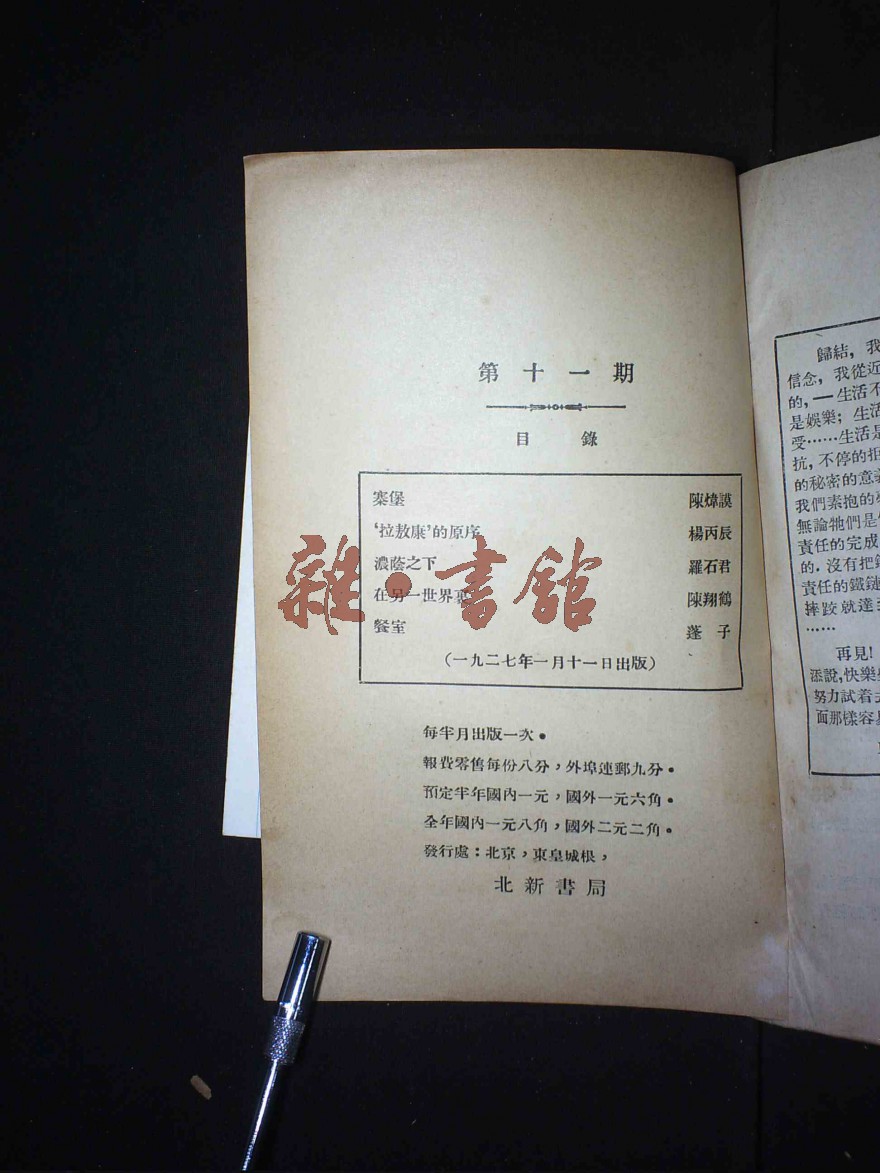 第十一期
目錄
寨堡 陳煒謨
‘拉敖康’的原序 楊丙辰
濃蔭之下 羅石君
在另一世界裏 陳翔鶴
餐室 蓬子
（一九二七年一月十一日出版）
每半月出版一次。
報費零售每份八分，外埠連郵九分。
預定半年國內一元，國外一元六角。
全年國內一元八角，國外二元二角。
發行處：北京，東皇城根，
北新書局
歸結，我
信念，我從近
的，—生活不
是娛樂；生活
受……生活是
抗，不停的拒
的秘密的意義
我們素抱的
無論牠們是
責任的完成
的．沒有把鐵
責任的鐵鏈
摔跤就達到
……
再見！
添說，快樂
努力試着去
面那樣容易
雜·書館